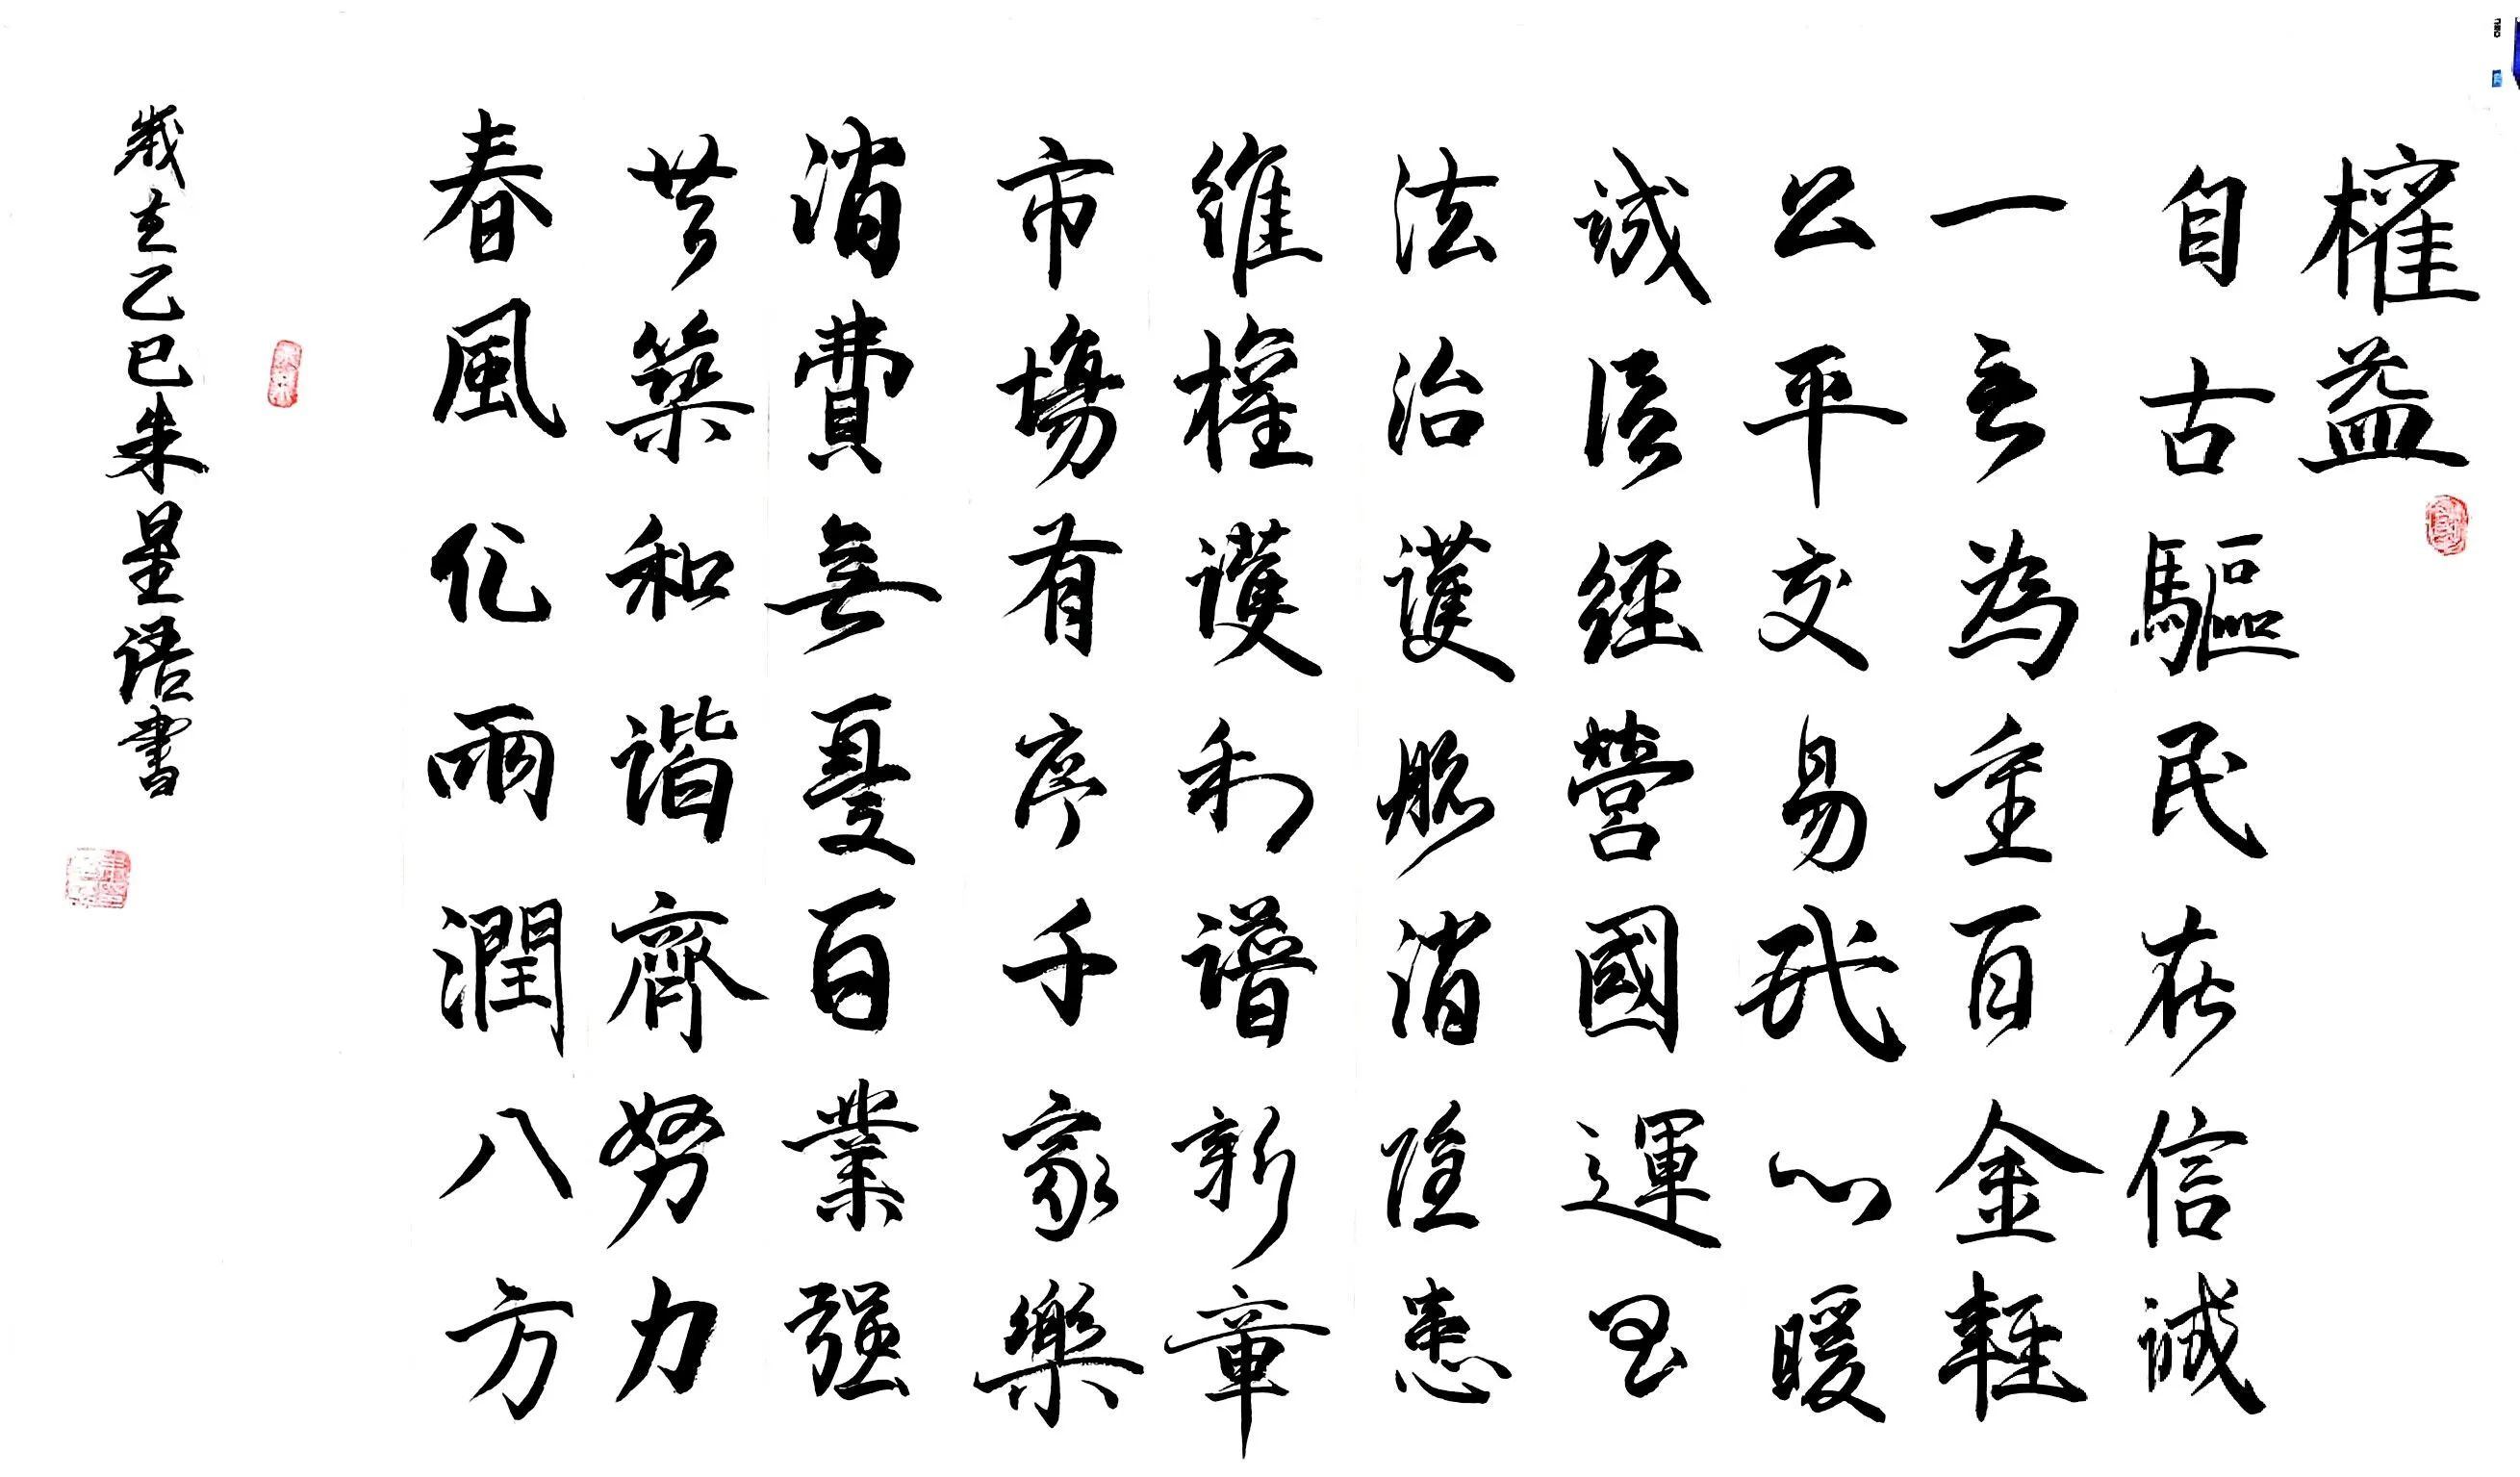 權益
自古驅民在信誠
一言為重百金輕
公平交易民心暖
誠信經營國運昌
法治護航消隱患
維權護利譜新章
市場有序千家樂
消費無憂百業强
共築和諧齊努力
春風化雨潤八方
歲在乙巳朱星語書